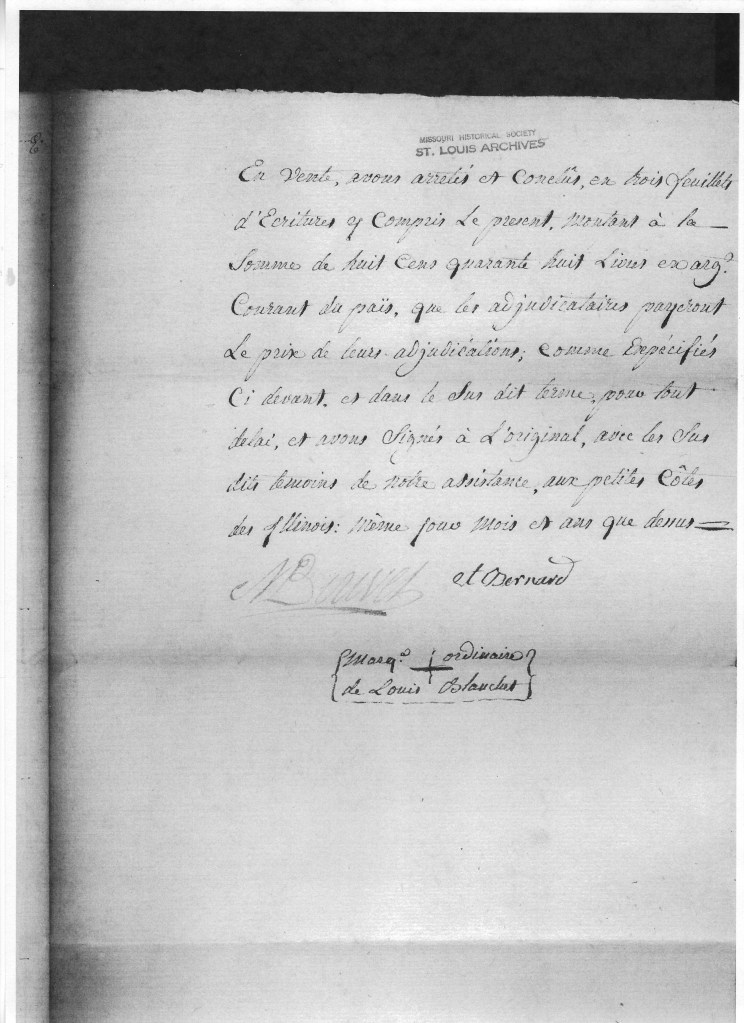 MISSOURI HISTORICAL SOCIETY
ST. LOUIS ARCHIVES
En Vente, avons arretés et Conclûs, en trois feuillets
d'Ecritures y Compris Le present, montant à la
Somme de huit Cens quarante huit Livres en arg.t
Courant du païs, que les adjudicataires payeront
Le prix de leurs adjudications; comme Expécifiés
Ci devant. et dans le Sus dit terme, pour tout
delai, et avons Signés à L'original, avec les Sus
dits temoins de notre assistance, aux petites Côtes
des Illinois: même jour mois et ans que dessus
et Bernard
Marq.e ordinaire
de Louis Blanchet